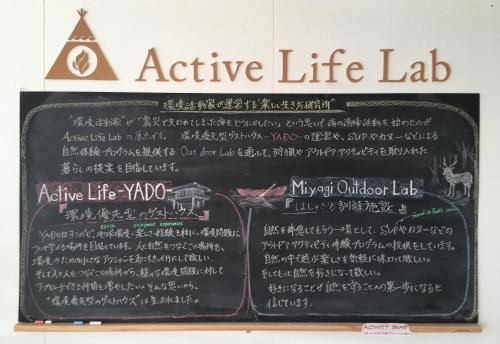 Active Life Lab
環境活動家が運営する"楽しい生き方研究所"
"環境活動家"が"震災で失われてしまった海をどうにかしたい"という思いで海の清掃活動を始めたのが
Active Life Labの原点です。環境優先型ゲストハウス-YADO-の運営や、SUPやカヌーなどによる
自然体験プログラムを提供するOutdoor Labを通して、狩猟やアウトドアアクティビティを取り入れた
暮らしの提案を目指しています。
Active Life-YADO-
環境優先型のゲストハウス
環境問題に
ついて学べる場所を目指しています。人と自然をつなぐこの場所を、
環境のための小さなアクションを起こすきっかけにして欲しい。
そして人と人をつなぐこの場所から、様々な環境問題に対して
アプローチできる仲間を増やしたい。そんな思いから、
"環境優先型のゲストハウス"は生まれました。
Miyagi Outdoor Lab
自然を体感してもらう一環として、SUPやカヌーなどの
アウトドアアクティビティ体験プログラムを提供をしています。
自然の中で遊ぶ楽しさを気軽に味わって欲しい。
そしてもっと自然を好きになって欲しい。
好きになることが自然を守ることへの第一歩になると
信じています。
ACTIVITY BOAD